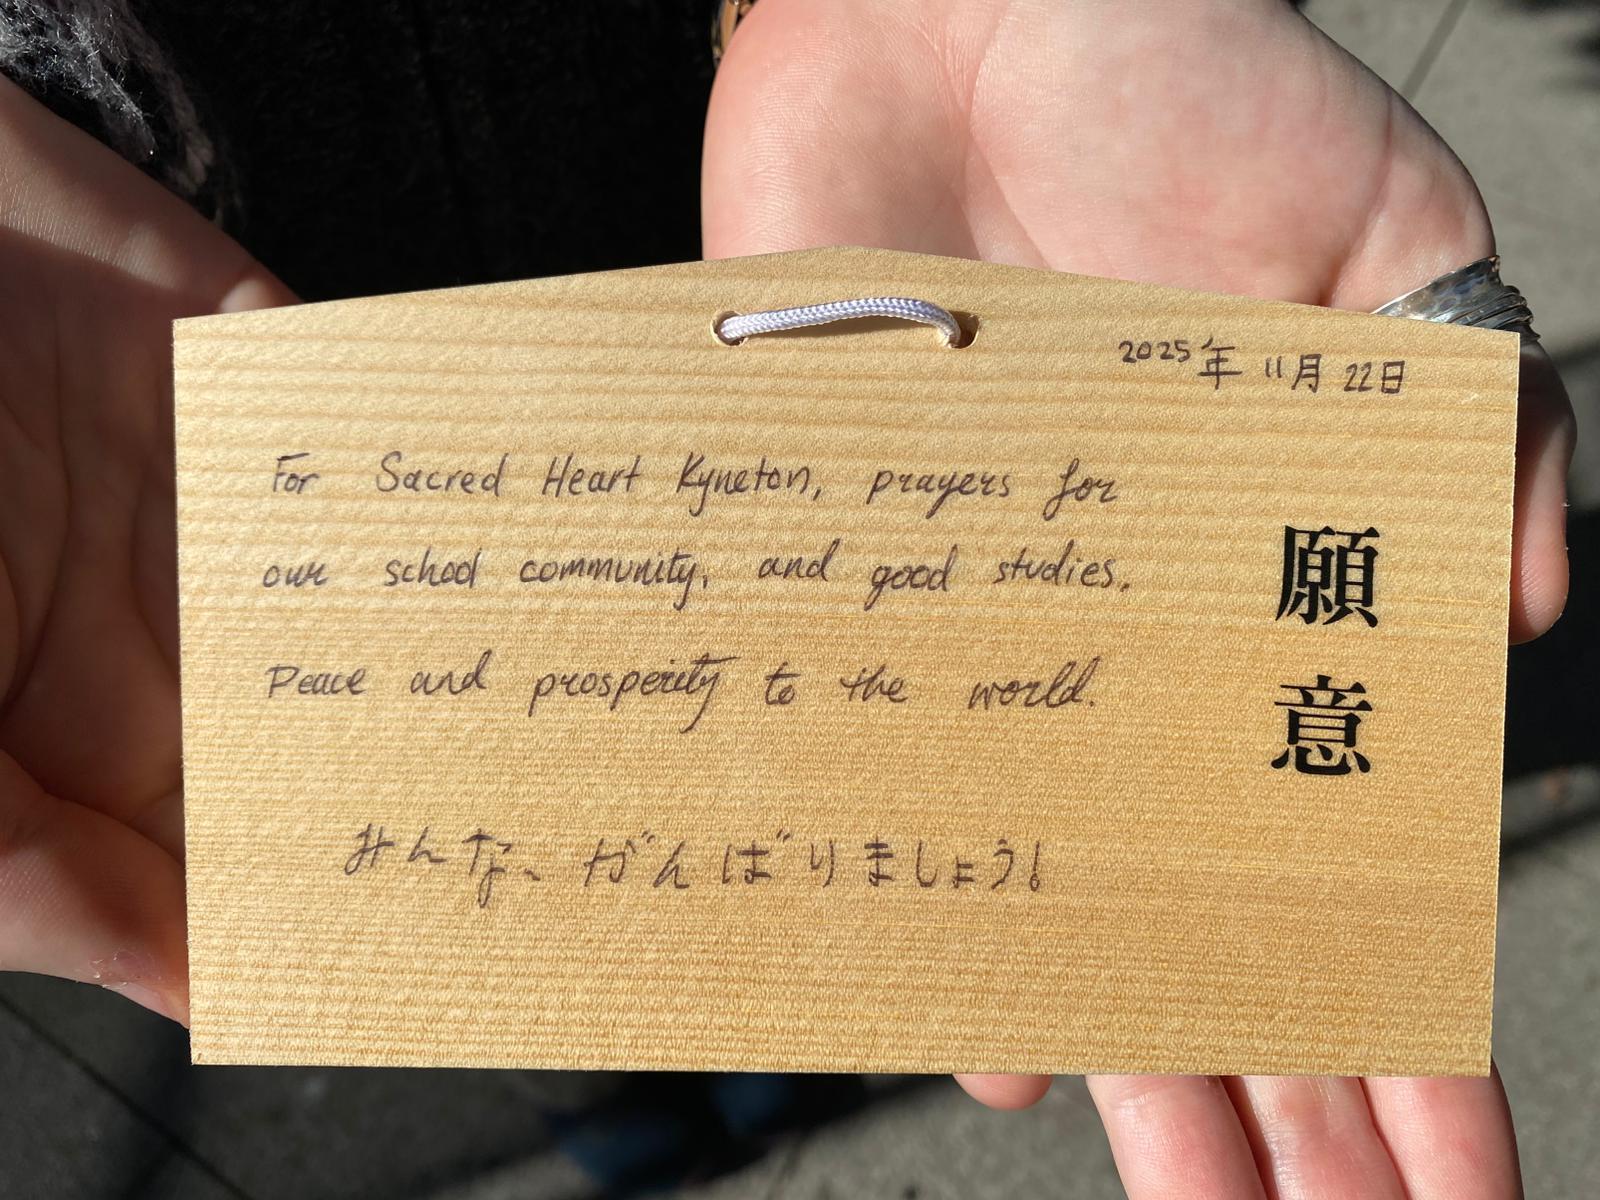 2025年 11月 22日
For Sacred Heart Kyneton, prayers for
our school community, and good studies.
Peace and prosperity to the world.
みんな、がんばりましょう!
願意